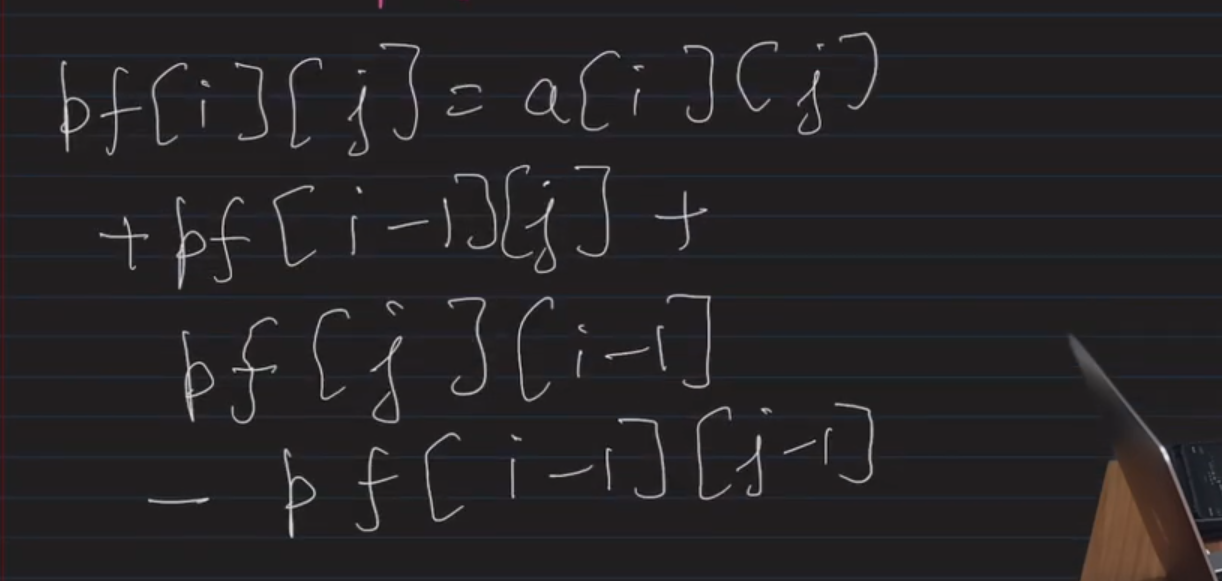 pf[i][j] = a[i](j)
+ pf[i-1][j] +
pf[j][i-1]
- pf[i-1][j-1]